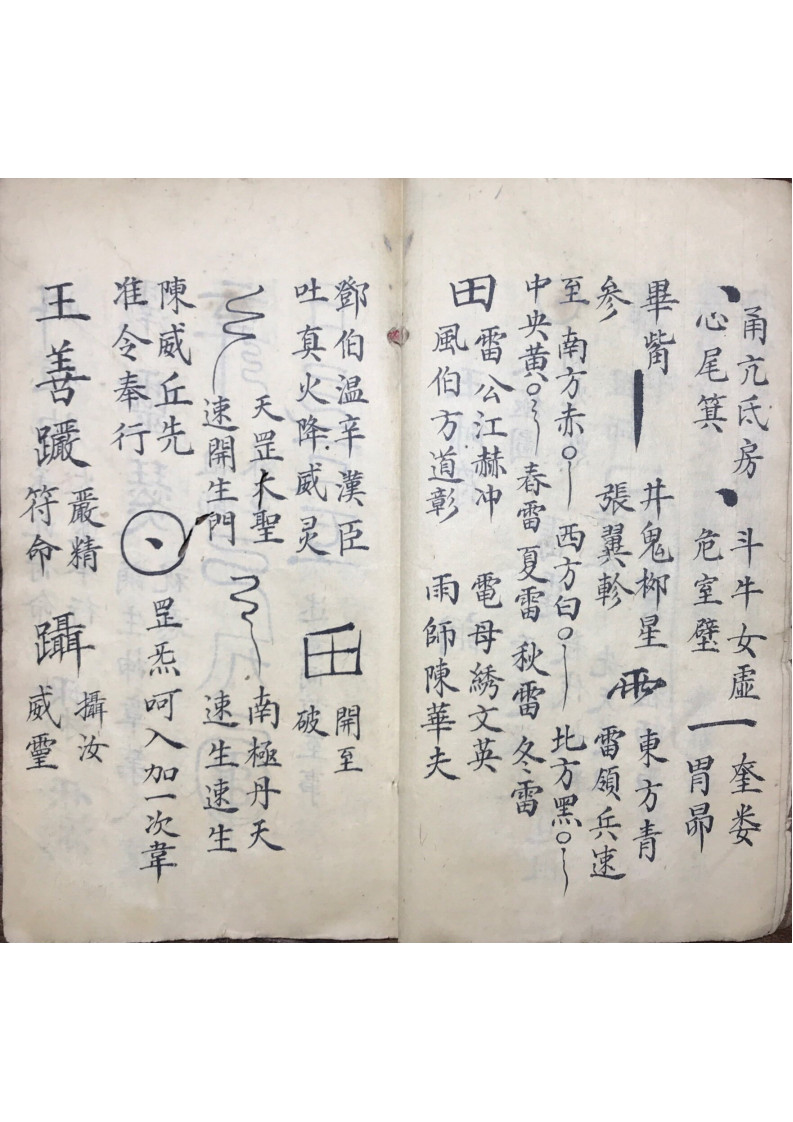 甬亢氐房
心尾箕
斗牛女虛
危室壁
一
奎娄
胃昴
畢觜
参
井鬼柳星
張翼軫
雨
東方青
雷領兵速
至 南方赤 西方白 北方黑
中央黄 春雷夏雷秋雷冬雷
田
雷公江赫冲 電母綉文英
風伯方道彰 雨師陳華夫
鄧伯温辛漢臣
吐真火降威灵
開至
破
天罡大聖
速開生門
南極丹天
速生速生
陳威丘先
准令奉行
罡炁呵入加一次韋
王善
嚴精
符命
躡
攝汝
威靈